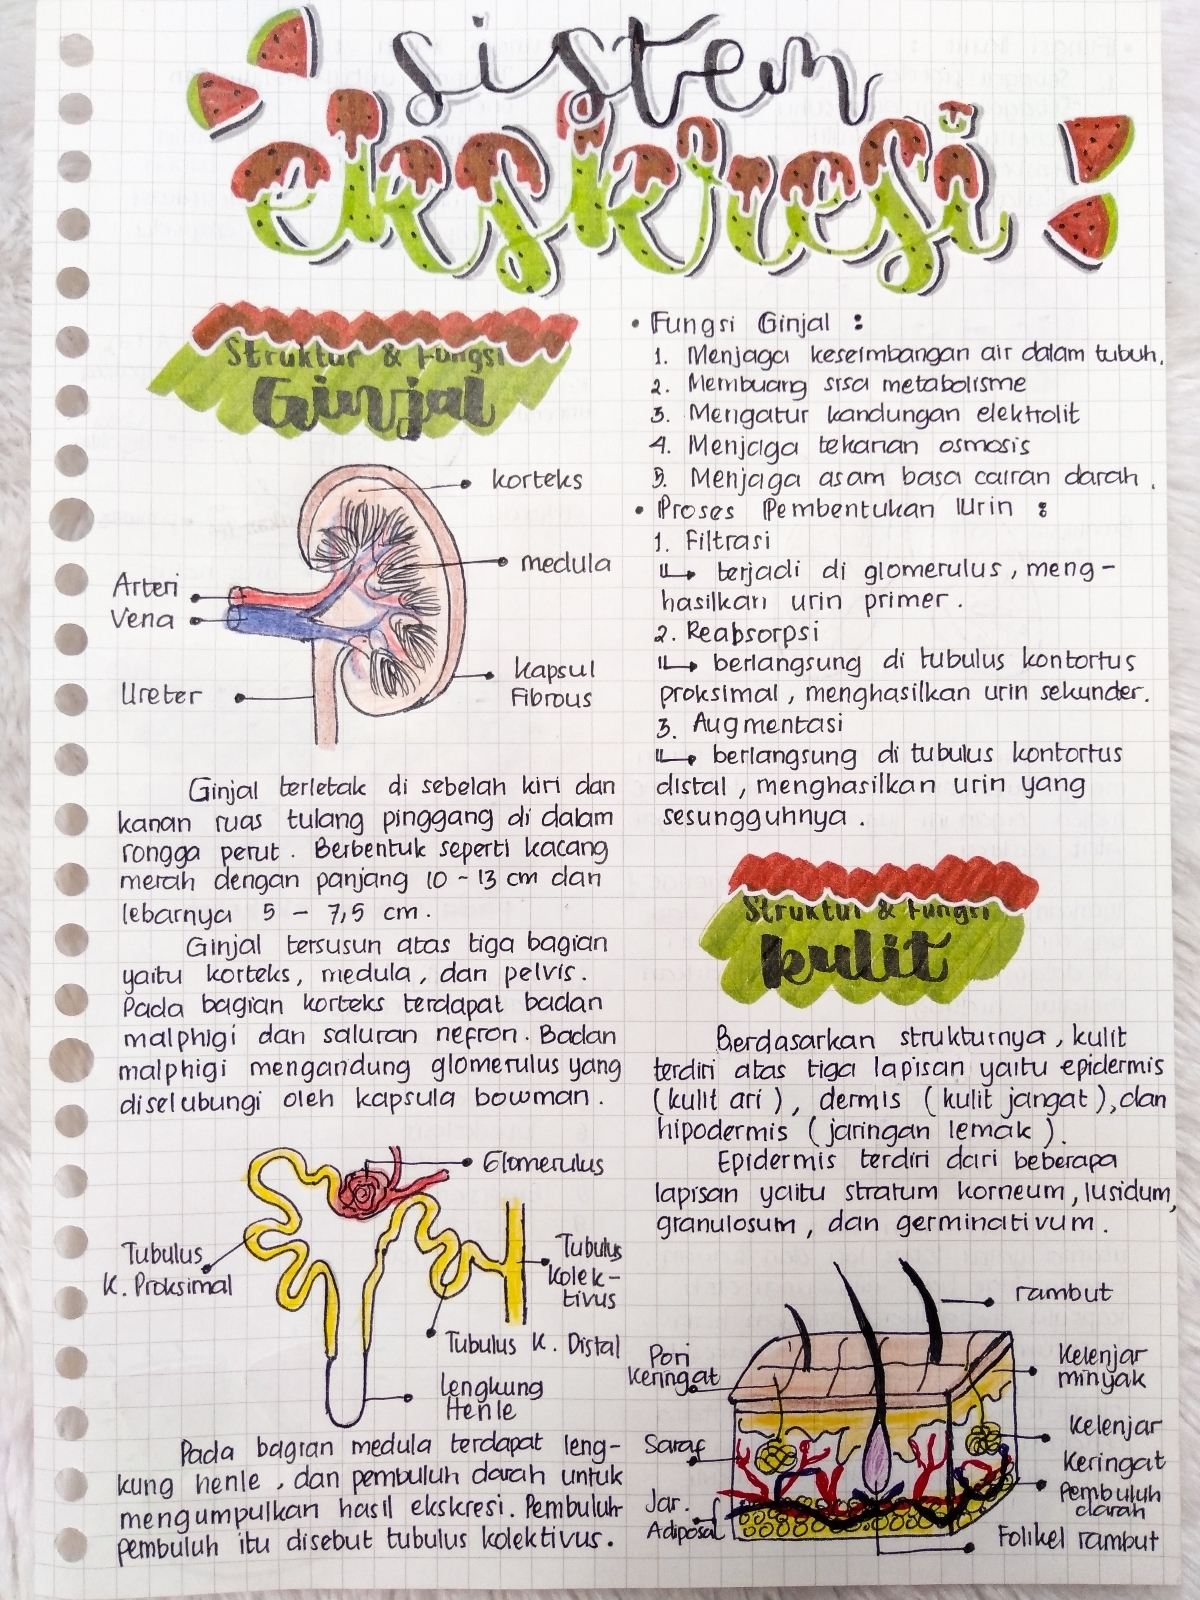 sistem
ekskresi
Struktur & Fungsi
Ginjal
korteks
medula
Arteri
Vena
Ureter
kapsul
Fibrous
Ginjal terletak di sebelah kiri dan
kanan ruas tulang pinggang di dalam
rongga perut. Berbentuk seperti kacang
merah dengan panjang 10 - 13 cm dan
lebarnya 5 - 7,5 cm.
Ginjal tersusun atas tiga bagian
yaitu korteks, medula, dan pelvis.
Pada bagian korteks terdapat badan
malphigi dan saluran nefron. Badan
malphigi mengandung glomerulus yang
diselubungi oleh kapsula bowman.
Glomerulus
Tubulus
K. Proksimal
Tubulus
Kolek-
tivus
Tubulus K. Distal
Lengkung
Henle
Pada bagian medula terdapat leng-
kung henle, dan pembuluh darah untuk
mengumpulkan hasil ekskresi. Pembuluh-
pembuluh itu disebut tubulus kolektivus.
• Fungsi Ginjal :
1. Menjaga keseimbangan air dalam tubuh.
2. Membuang sisa metabolisme
3. Mengatur kandungan elektrolit
4. Menjaga tekanan osmosis
5. Menjaga asam basa cairan darah.
• Proses Pembentukan Urin :
1. Filtrasi
↳ terjadi di glomerulus, meng-
hasilkan urin primer.
2. Reabsorpsi
↳ berlangsung di tubulus kontortus
proksimal, menghasilkan urin sekunder.
3. Augmentasi
↳ berlangsung di tubulus kontortus
distal, menghasilkan urin yang
sesungguhnya.
Struktur & Fungsi
kulit
Berdasarkan strukturnya, kulit
terdiri atas tiga lapisan yaitu epidermis
(kulit ari), dermis (kulit jangat), dan
hipodermis (jaringan lemak).
Epidermis terdiri dari beberapa
lapisan yaitu stratum korneum, lusidum,
granulosum, dan germinativum.
rambut
Pori
keringat
Kelenjar
minyak
Saraf
Kelenjar
Keringat
Jar.
Adiposal
Pembuluh
darah
Folikel rambut